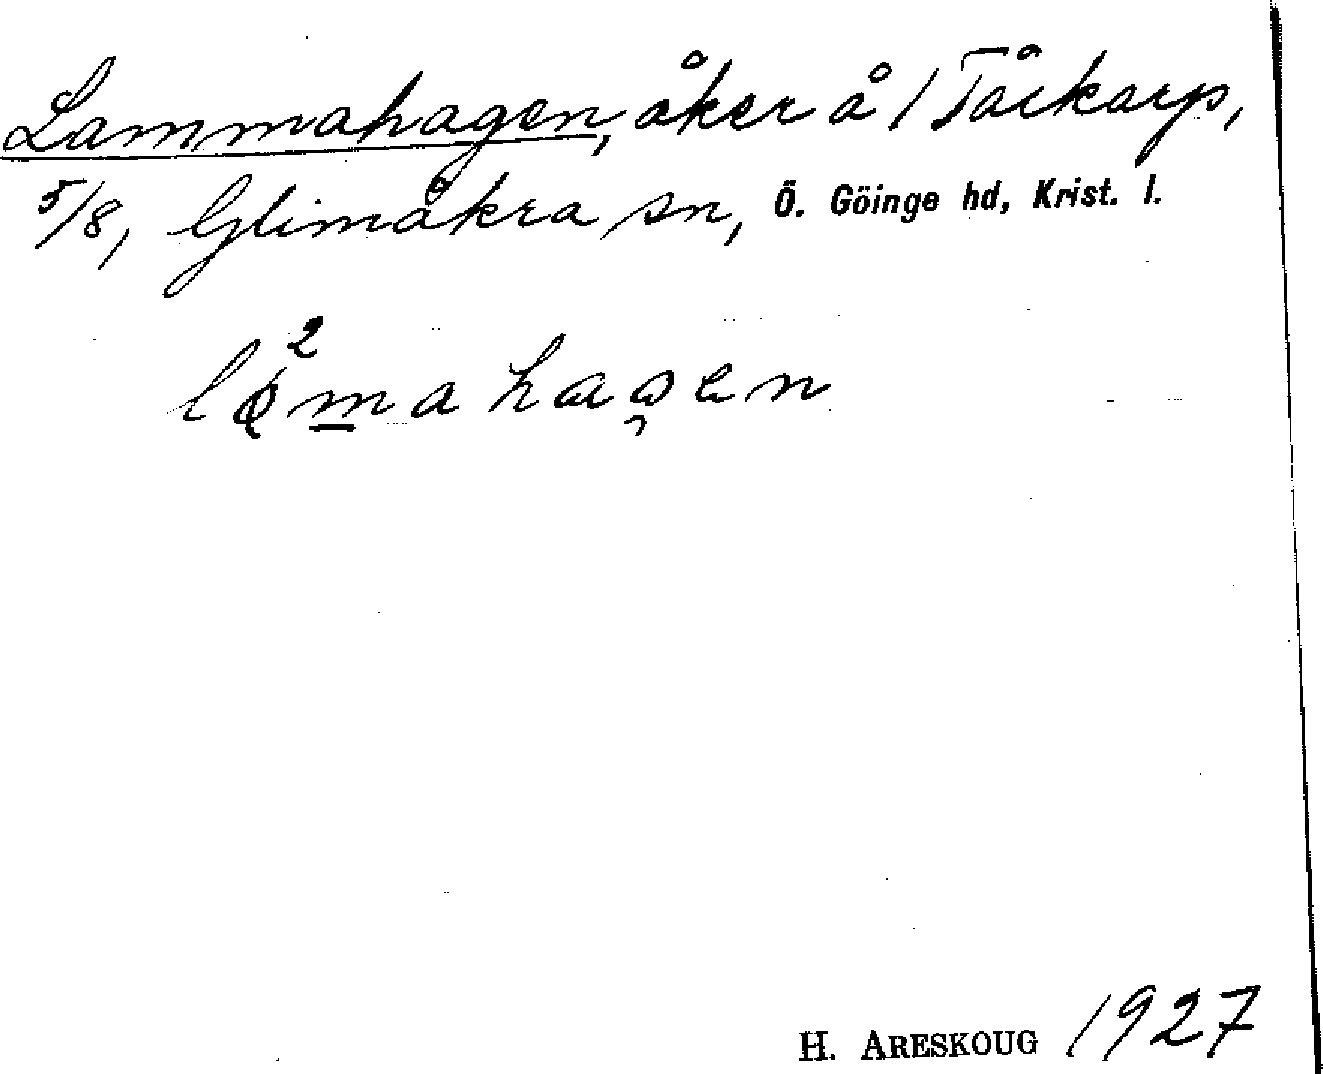 Lammahagen, åker å 1 Tåckarp,
5/8, Glimåkra sn, Ö. Göinge hd, Krist. l.
H. ARESKOUG 1927